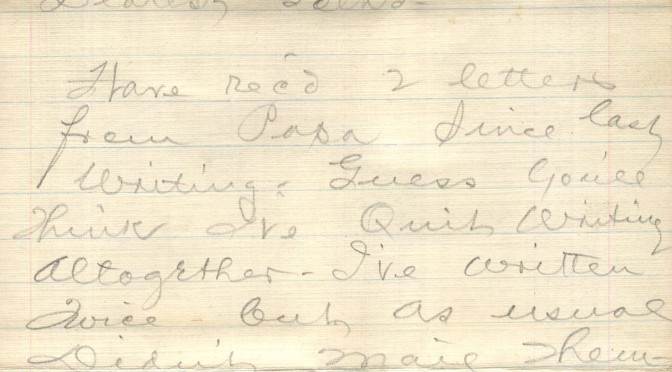 Dearest
Have rec'd 2 letters
from Papa Since last
Writing. Guess You'll
Think I've Quit Writing
Altogether - I've written
Twice but as usual
Didn't Mail Them-